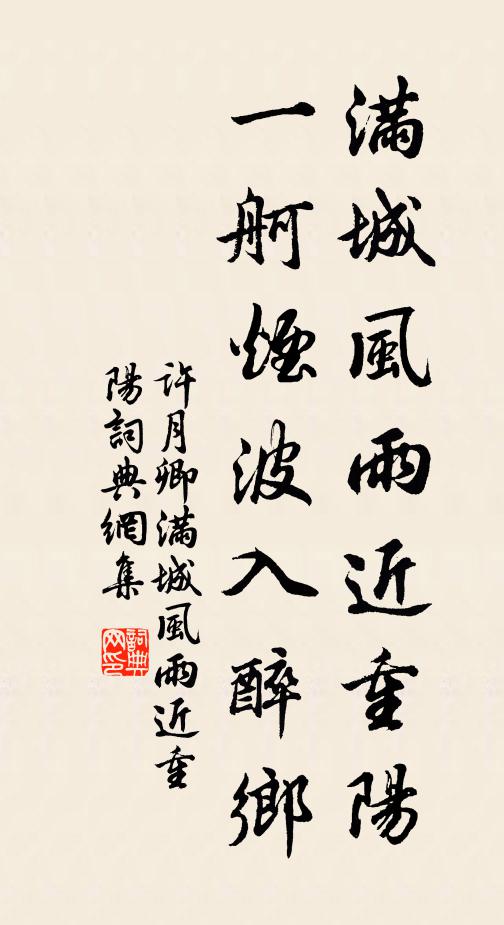 滿城風雨近重陽
一舸煙波入醉鄉
許月卿滿城風雨近重
陽詞典網集
詞典
网印